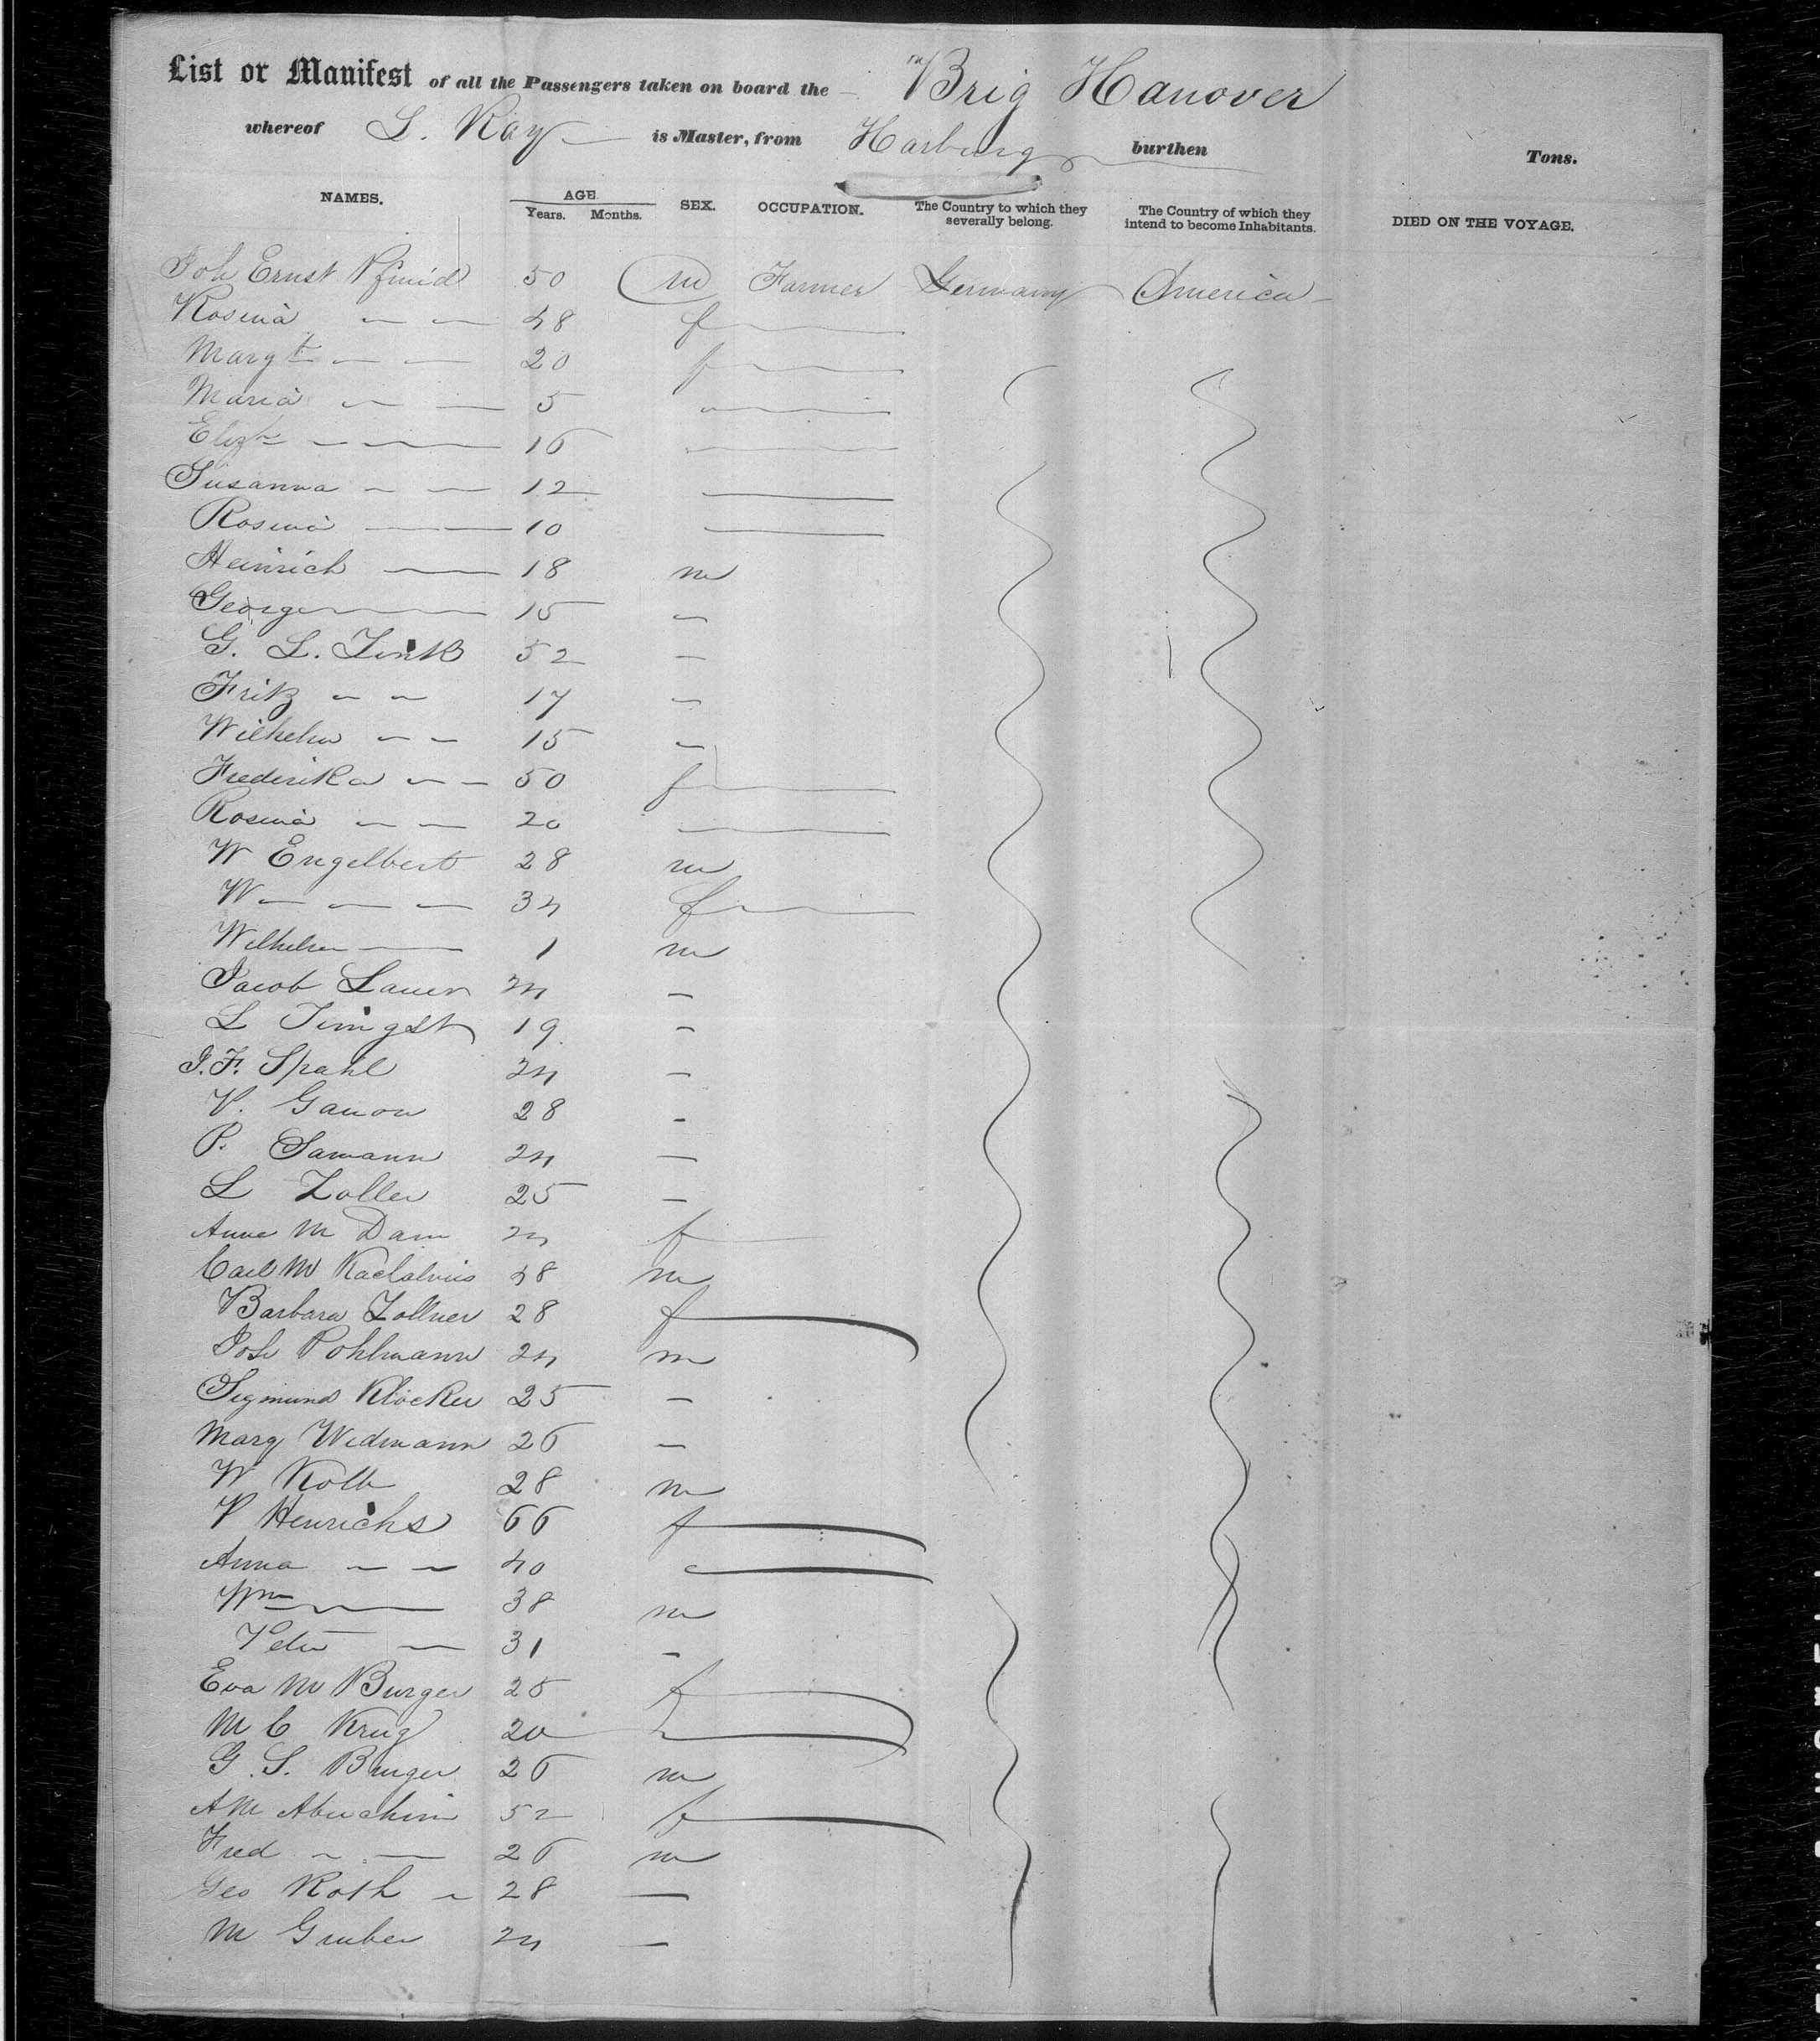 List or Manifest of all the Passengers taken on board the Brig Hanover
whereof L. Kay is Master, from Harburg burthen Tons.
NAMES. AGE. SEX. OCCUPATION. The Country to which they severally belong. The Country of which they intend to become Inhabitants. DIED ON THE VOYAGE.
Years. Months.
Joh Ernst 50 m Farmer Germany America
Rosina — — 48 f
Margt — — 20 f
Maria — — 5
Elizth — — 16
Susanna — — 12
Rosina — 10
Heinrich — 18 m
George — 15 —
G. L. Link 52 —
Fritz — — 17 —
Wilhelm — — 15 —
Frederika — — 50 f
Rosina — — 20
W Engelbert 28 m
W — — — 34 f
Wilhelm — 1 m
Jacob Lauer 24 —
L 19 —
J. F. Spahl 24 —
V. Ganon 28 —
P. Samann 24 —
L Zoller 25 —
Anna M Dam 24 f
Carl M 48 m
Barbara Zollner 28 f
Joh Pohlmann 24 m
Sigmund Klocker 25 —
Marg Widmann 26 —
W Kolb 28 m
P Henrichs 66 f
Anna — — 40
Wm — 38 m
Peter — 31 —
Eva M Burger 25 f
M C Krug 20
G. S. Burger 26 m
A M 52 f
Fred — — 26 m
Geo Roth — 28 —
M Gruber 24 —